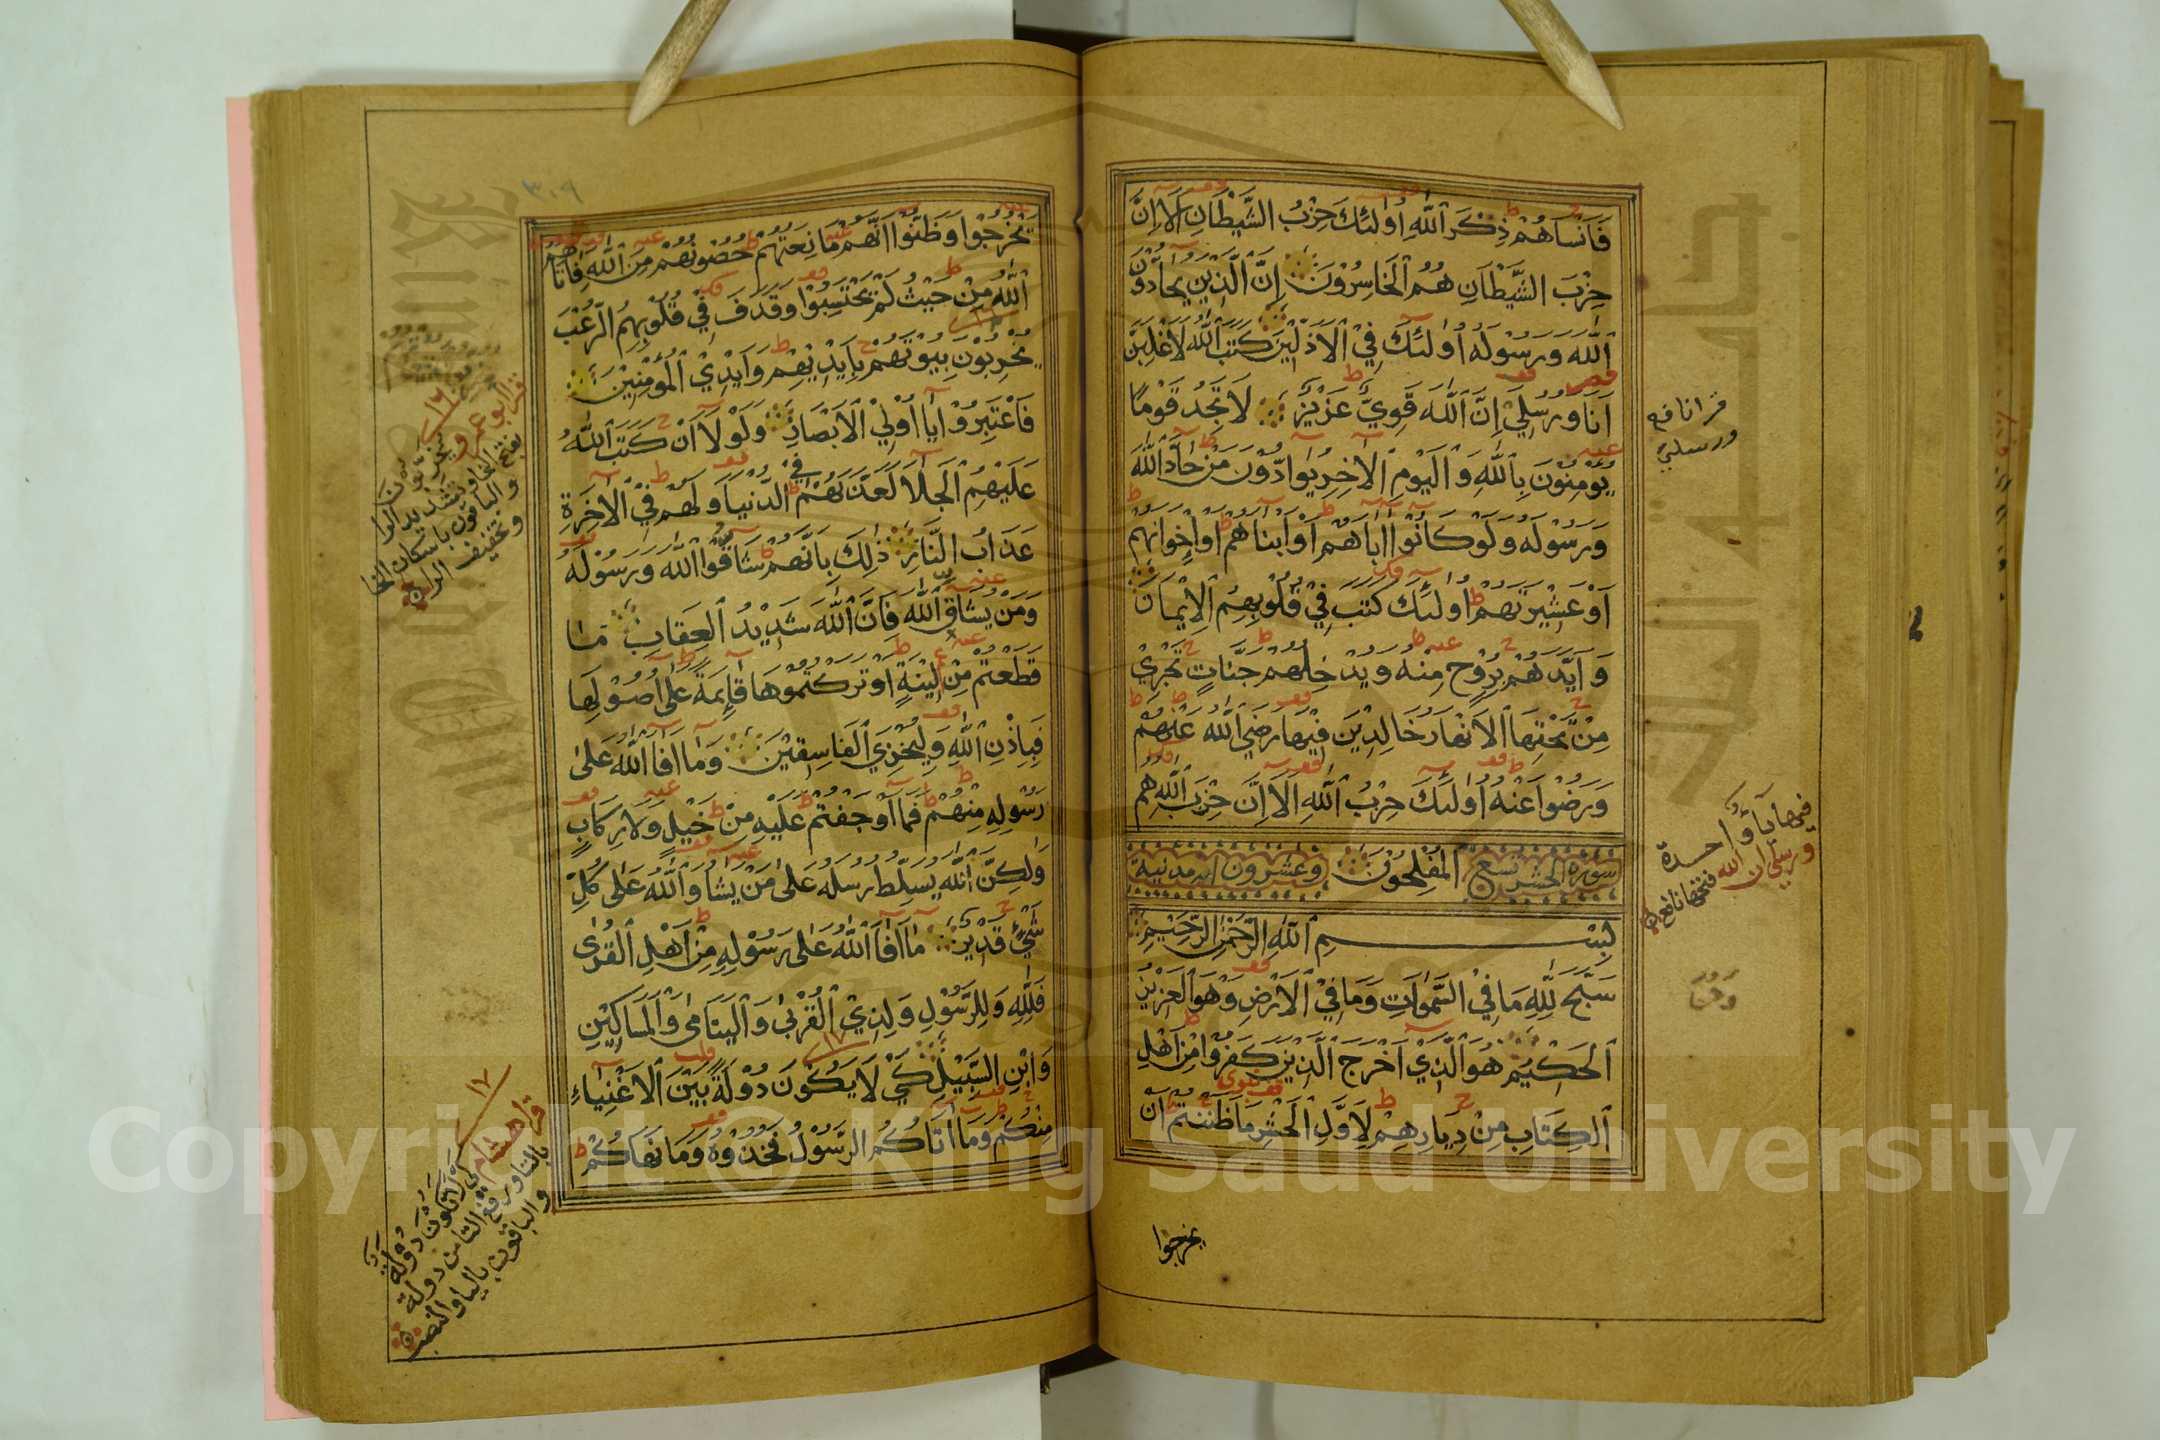 فَاَنْسَاهُمْ ذِكْرَ اللّٰهِ اُولٰئِكَ حِزْبُ الشَّيْطَانِ اَلَا اِنَّ
حِزْبَ الشَّيْطَانِ هُمُ الْخَاسِرُوْنَ اِنَّ الَّذِيْنَ يُحَادُّوْنَ
اللّٰهَ وَرَسُوْلَهُ اُولٰئِكَ فِيْ الْاَذَلِّيْنَ كَتَبَ اللّٰهُ لَاَغْلِبَنَّ
اَنَا وَرُسُلِيْ اِنَّ اللّٰهَ قَوِيٌّ عَزِيْزٌ لَا تَجِدُ قَوْمًا
يُؤْمِنُوْنَ بِاللّٰهِ وَالْيَوْمِ الْاٰخِرِ يُوَادُّوْنَ مَنْ حَادَّ اللّٰهَ
وَرَسُوْلَهُ وَلَوْ كَانُوْا اٰبَاءَهُمْ اَوْ اَبْنَاءَهُمْ اَوْ اِخْوَانَهُمْ
اَوْ عَشِيْرَتَهُمْ اُولٰئِكَ كَتَبَ فِيْ قُلُوْبِهِمُ الْاِيْمَانَ
وَاَيَّدَهُمْ بِرُوْحٍ مِنْهُ وَيُدْخِلُهُمْ جَنَّاتٍ تَجْرِيْ
مِنْ تَحْتِهَا الْاَنْهَارُ خَالِدِيْنَ فِيْهَا رَضِيَ اللّٰهُ عَنْهُمْ
وَرَضُوْا عَنْهُ اُولٰئِكَ حِزْبُ اللّٰهِ اَلَا اِنَّ حِزْبَ اللّٰهِ هُمُ
سورة الحشر تسع الْمُفْلِحُوْنَ وعشرون اية مدنية
بِسْمِ اللّٰهِ الرَّحْمٰنِ الرَّحِيْمِ
سَبَّحَ لِلّٰهِ مَا فِيْ السَّمٰوَاتِ وَمَا فِيْ الْاَرْضِ وَهُوَ الْعَزِيْزُ
الْحَكِيْمُ هُوَ الَّذِيْ اَخْرَجَ الَّذِيْنَ كَفَرُوْا مِنْ اَهْلِ
الْكِتَابِ مِنْ دِيَارِهِمْ لِاَوَّلِ الْحَشْرِ مَا ظَنَنْتُمْ اَنْ
يخرجوا
قرا نافع
ورسلي
فيها ياء واحدة
ورسلي ان الله فتحها نافع
٣٠٩
يَخْرُجُوْا وَظَنُّوْا اَنَّهُمْ مَانِعَتُهُمْ حُصُوْنُهُمْ مِنَ اللّٰهِ فَاَتَاهُمُ
اللّٰهُ مِنْ حَيْثُ لَمْ يَحْتَسِبُوْا وَقَذَفَ فِيْ قُلُوْبِهِمُ الرُّعْبَ
يُخْرِبُوْنَ بُيُوْتَهُمْ بِاَيْدِيْهِمْ وَاَيْدِيْ الْمُؤْمِنِيْنَ
فَاعْتَبِرُوْا يَا اُوْلِيْ الْاَبْصَارِ وَلَوْلَا اَنْ كَتَبَ اللّٰهُ
عَلَيْهِمُ الْجَلَاءَ لَعَذَّبَهُمْ فِيْ الدُّنْيَا وَلَهُمْ فِيْ الْاٰخِرَةِ
عَذَابُ النَّارِ ذٰلِكَ بِاَنَّهُمْ شَاقُّوْا اللّٰهَ وَرَسُوْلَهُ
وَمَنْ يُشَاقِّ اللّٰهَ فَاِنَّ اللّٰهَ شَدِيْدُ الْعِقَابِ مَا
قَطَعْتُمْ مِنْ لِيْنَةٍ اَوْ تَرَكْتُمُوْهَا قَائِمَةً عَلٰى اُصُوْلِهَا
فَبِاِذْنِ اللّٰهِ وَلِيُخْزِيَ الْفَاسِقِيْنَ وَمَا اَفَاءَ اللّٰهُ عَلٰى
رَسُوْلِهِ مِنْهُمْ فَمَا اَوْجَفْتُمْ عَلَيْهِ مِنْ خَيْلٍ وَلَا رِكَابٍ
وَلٰكِنَّ اللّٰهَ يُسَلِّطُ رُسُلَهُ عَلٰى مَنْ يَشَاءُ وَاللّٰهُ عَلٰى كُلِّ
شَيْءٍ قَدِيْرٌ مَا اَفَاءَ اللّٰهُ عَلٰى رَسُوْلِهِ مِنْ اَهْلِ الْقُرٰى
فَلِلّٰهِ وَلِلرَّسُوْلِ وَلِذِيْ الْقُرْبٰى وَالْيَتَامٰى وَالْمَسَاكِيْنِ
وَابْنِ السَّبِيْلِ كَيْ لَا يَكُوْنَ دُوْلَةً بَيْنَ الْاَغْنِيَاءِ
مِنْكُمْ وَمَا اٰتَاكُمُ الرَّسُوْلُ فَخُذُوْهُ وَمَا نَهَاكُمْ
١٦
قرا ابو عمرو يخربون
بفتح الخا وتشديد الرا
والباقون باسكان الخا
وتخفيف الرا
١٧
قرا هشام كي لا تكون دولة
بالتا ورفع التا من دولة
والباقون باليا والنصب
Copyright © King Saud University